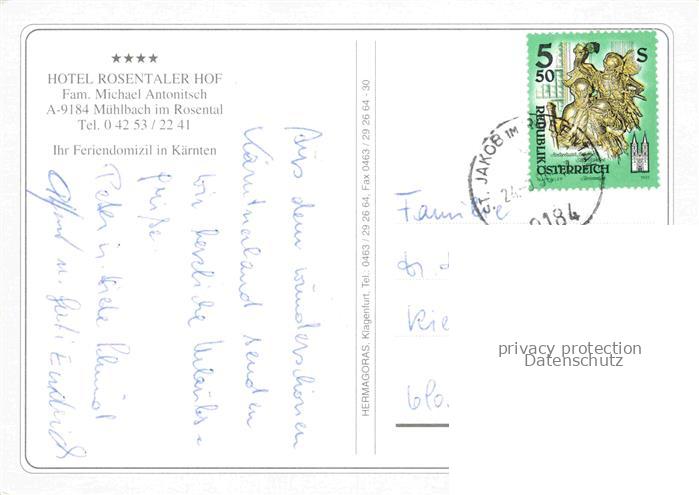 ★★★★
HOTEL ROSENTALER HOF
Fam. Michael Antonitsch
A-9184 Mühlbach im Rosental
Tel. 0 42 53 / 22 41
Ihr Feriendomizil in Kärnten
Aus dem wunderschönen
Kärntnerland senden
wir herzliche Urlaubs-
grüße.
Peter u.
HERMAGORAS, Klagenfurt, Tel.: 0463 / 29 26 64, Fax 0463 / 29 26 64 - 30
5 50 S
REPUBLIK
ÖSTERREICH
ST. JAKOB IM
9184
Familie
privacy protection
Datenschutz